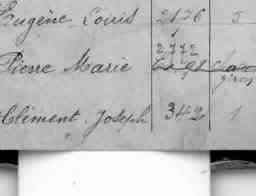 Eugène Louis 2176 5
2772
Pierre Marie
Clément Joseph 342 1